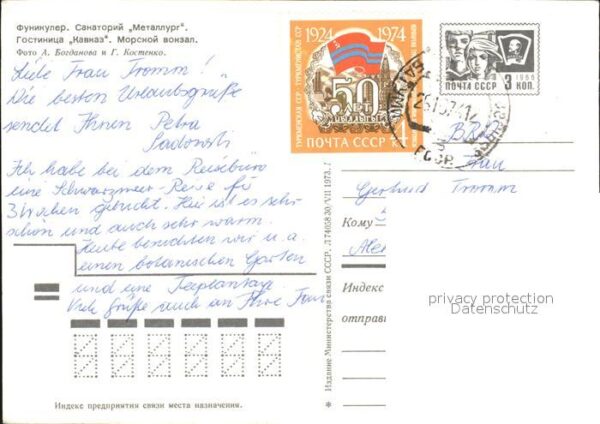 Фуникулер. Санаторий „Металлург“.
Гостиница „Кавказ“. Морской вокзал.
Фото А. Богданова и Г. Костенко.
Liebe Frau Tromm!
Die besten Urlaubsgrüße
sendet Ihnen Petra
Sadowski
Ich habe bei dem Reisebüro
eine Schwarzmeer-Reise für
3 Wochen gebucht. Hier ist es sehr
schön und auch sehr warm.
Heute besuchten wir u. a.
einen botanischen Garten
und eine Teeplantage.
Viele Grüße auch an Ihre
Индекс предприятия связи места назначения.
Издание Министерства связи СССР.
1924 1974
ТУРКМЕНСКАЯ ССР
50 ЛЕТ
ПОЧТА СССР К4
1966
3 КОП.
ПОЧТА СССР
БАТУМИ
BRD
Frau
Gertrud Tromm
Кому
Индекс
отправи
privacy protection
Datenschutz